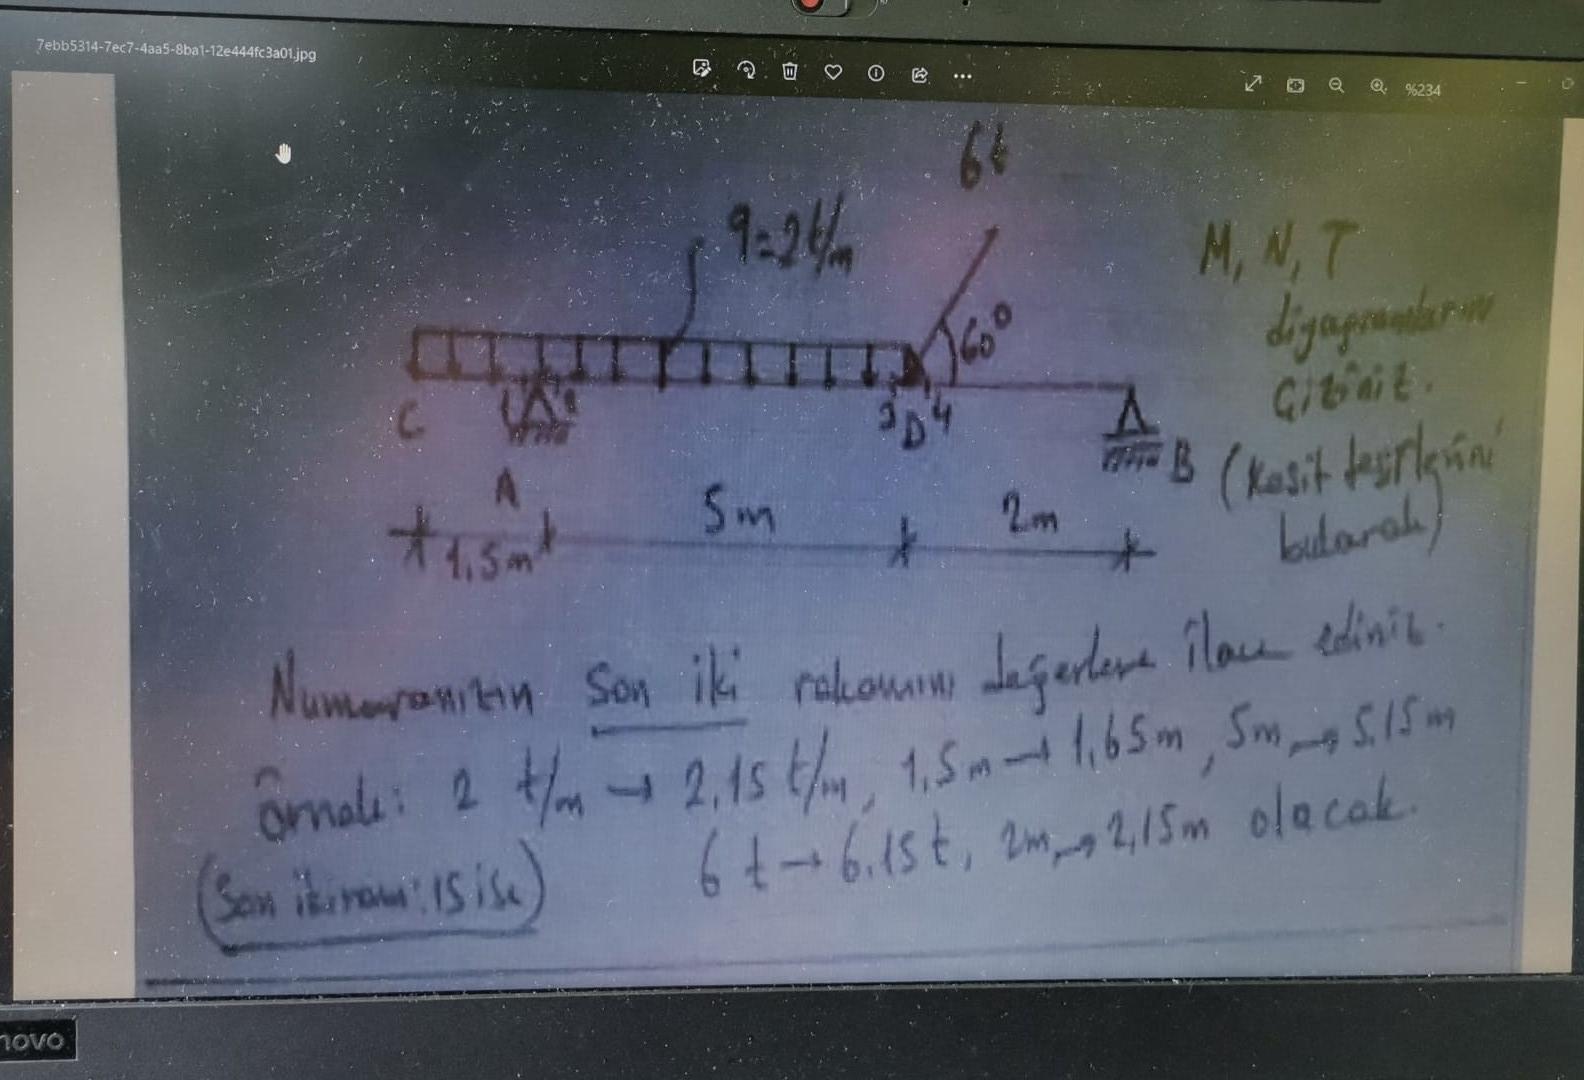 7ebb5314-7ec7-4aa5-8ba1-12e444fc3a01.jpg
%234
6t
q=2t/m
M, N, T
diyagramlarını
çiziniz.
60°
C
3 D 4
B
(Kesit tesirlerini
bularak)
A
1,5m
5m
2m
Numaranızın son iki rakamını değerlere ilave ediniz.
Örnek: 2 t/m → 2,15 t/m, 1,5m → 1,65m, 5m → 5,15m
(Son iki rakam: 15 ise)
6t → 6,15t, 2m → 2,15m olacak.
novo